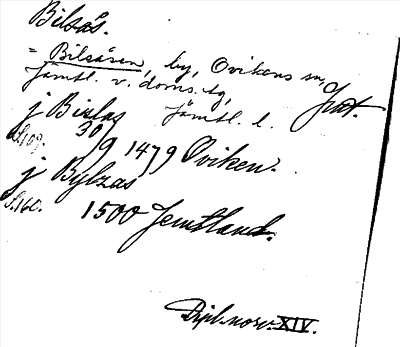 Bilsås.
= Bilsåsen, by, Ovikens sn,
Jämtl. v. doms. tg,
Jämtl. l.
j Bislas
S. 109. 30/9 1479 Oviken.
j Bylzas
S. 160. 1500 Jemtland.
Dipl. norv. XIV.